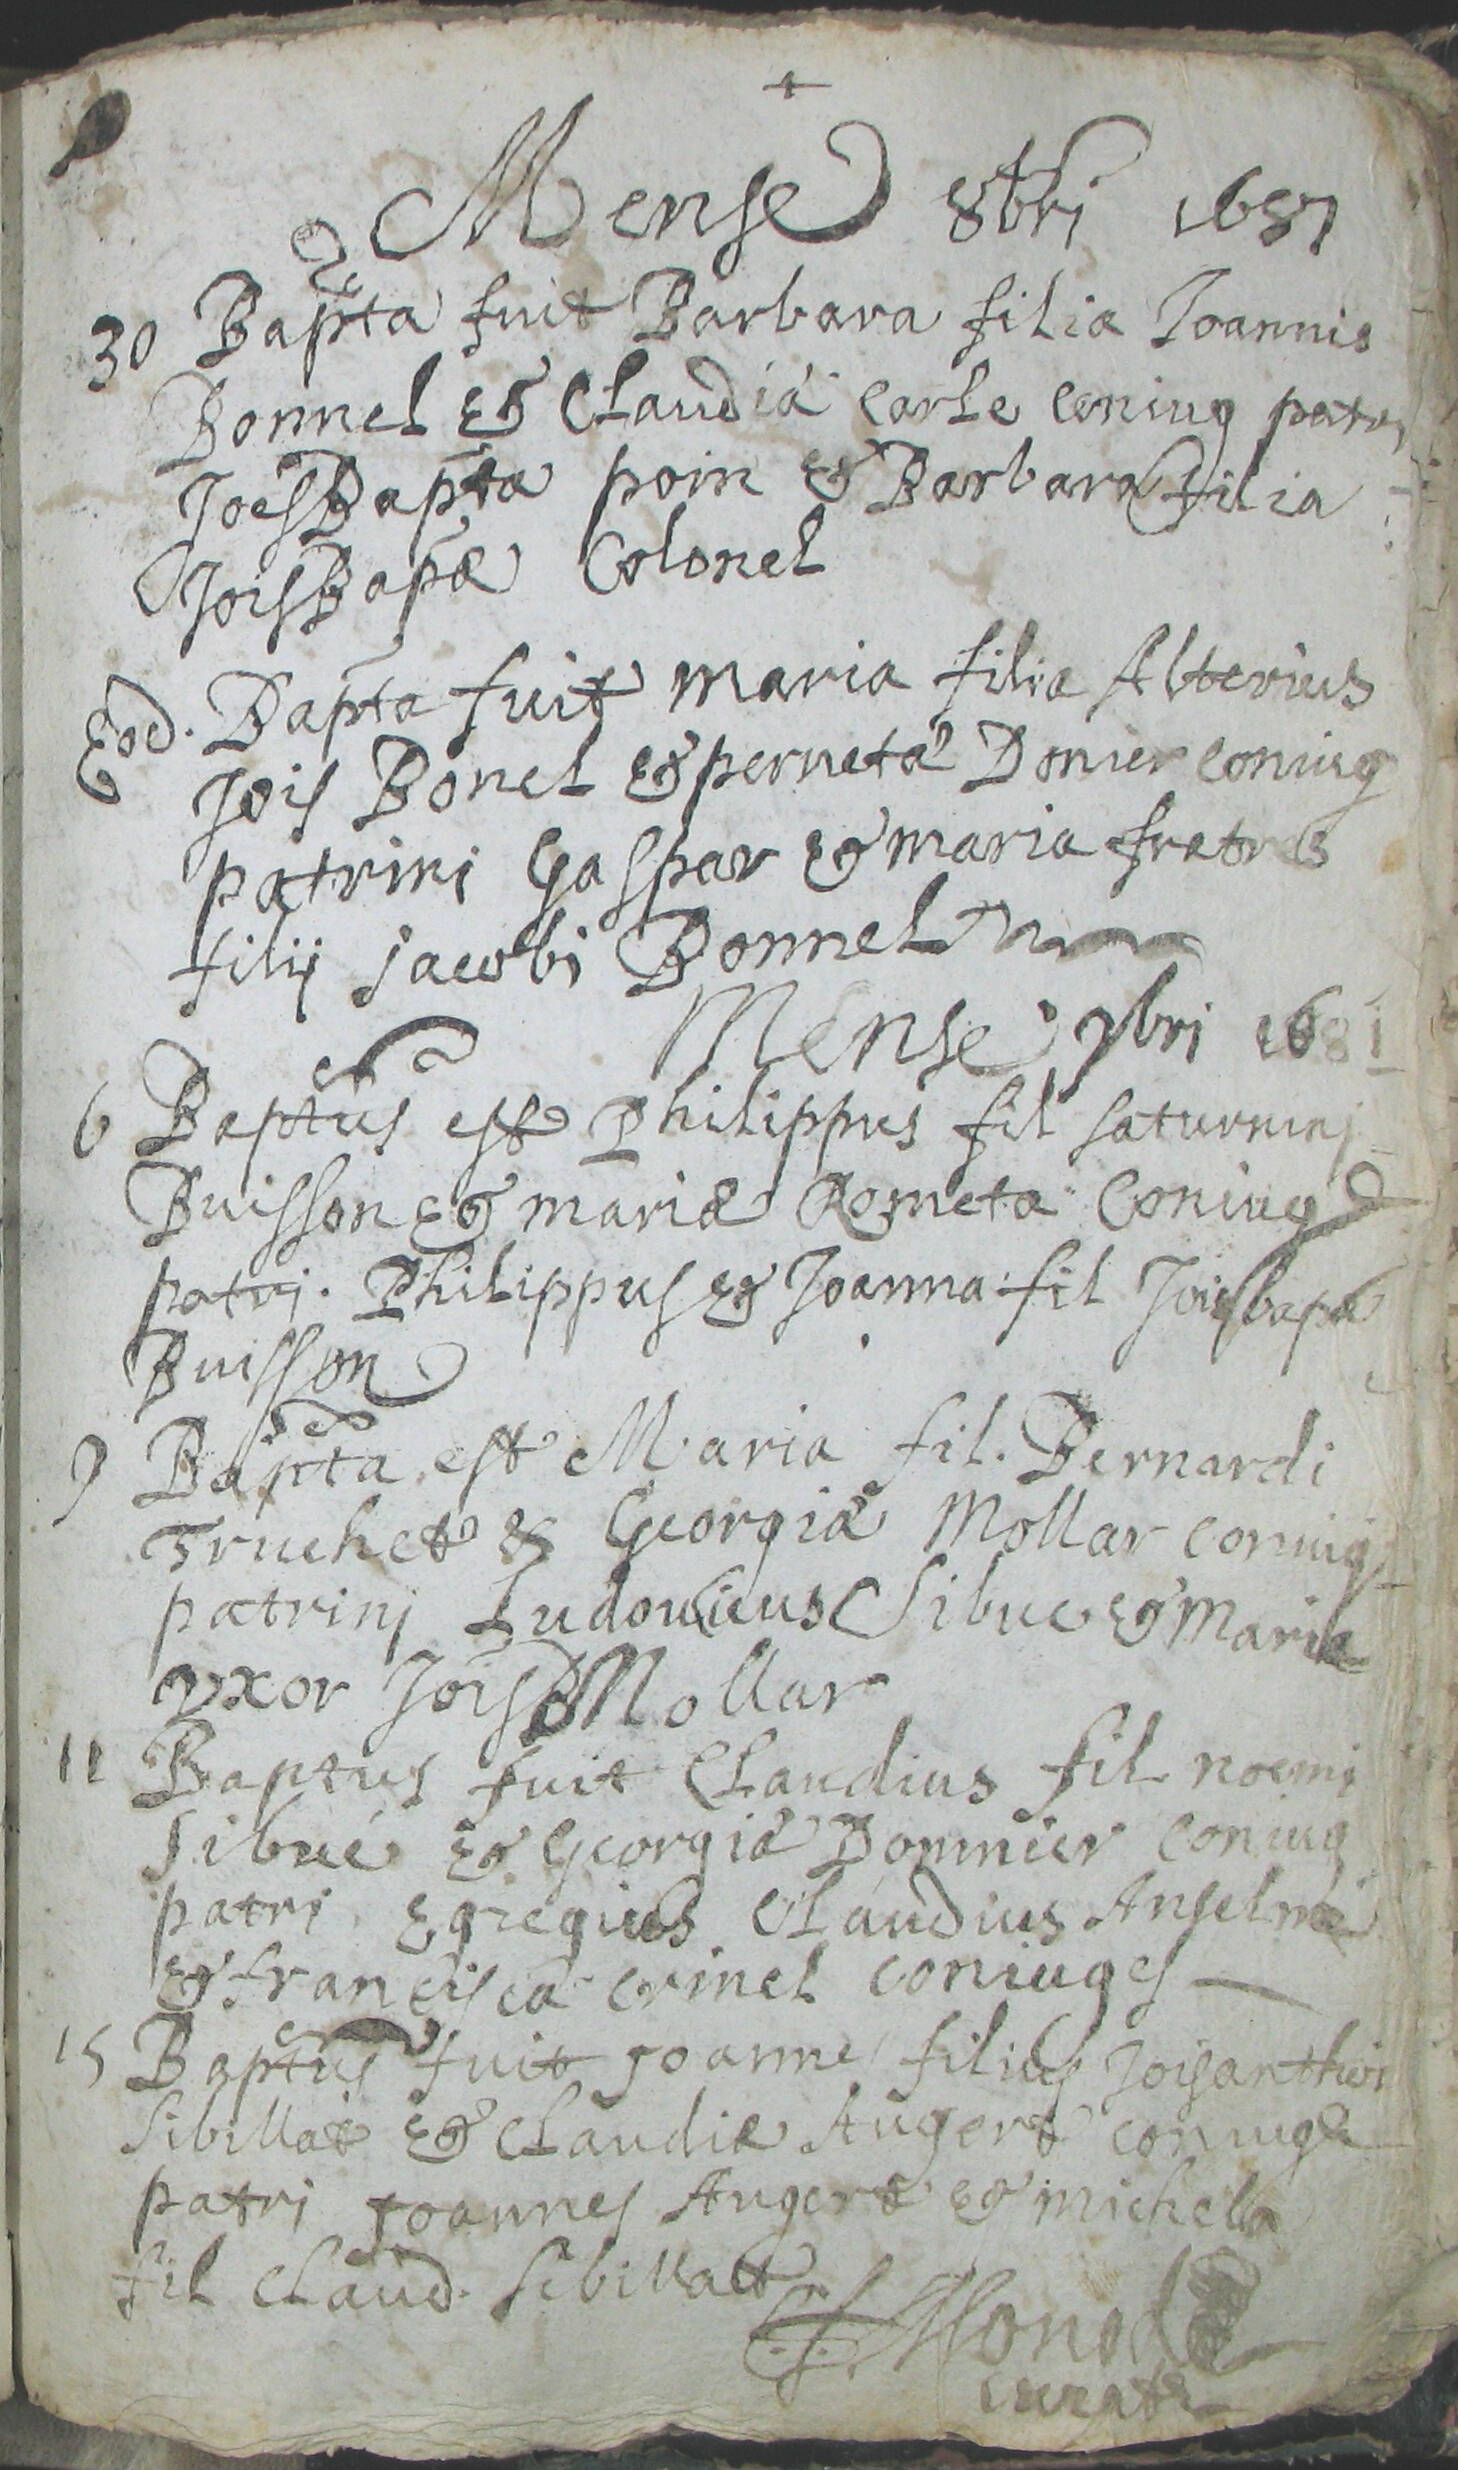 Mense 8bri 1681
30 Bapta fuit Barbara filia Joannis
Bonnel & Claudiæ Carle coniug patr
Joes Bapta poin & Barbara filia
Jois Bapæ Colonel
Eod. Bapta fuit maria filia Alterius
Jois Bonel & pernetæ Donier coniug
patrinj Gaspar & maria fratres
filij jacobi Bonnel
Mense 9bri 1681
6 Baptus est Philippus fil saturninj
Buisson & mariæ Rometa Coniug
patrj. Philippus & Joanna fil Joisbapæ
Buisson
9 Bapta est Maria fil. Bernardi
Truchet & Georgiæ Mollar coniug
patrinj Ludovicus Sibue & Maria
vxor Jois Mollar
11 Baptus fuit Claudius fil noemj
Sibué & Georgiæ Donnier coniug
patri Egregius Claudius Anselme
& francisca crinel coniuges
15 Baptus fuit Joannes filius Jois
Sibillat & Claudiæ Augert coniug
patri Joannes Augert & michela
fil Claud. Sibillat